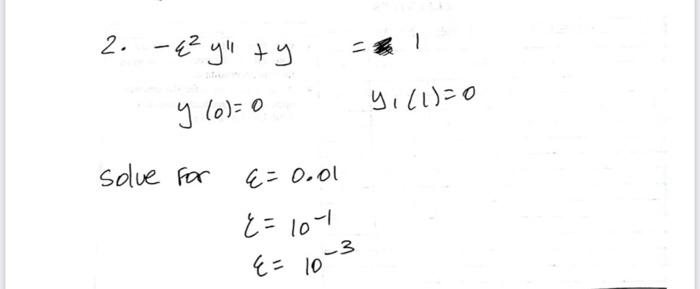 2. -ε² y" + y = 1
y (0)=0 y₁(1)=0
Solve For ε= 0.01
ε= 10⁻¹
ε= 10⁻³